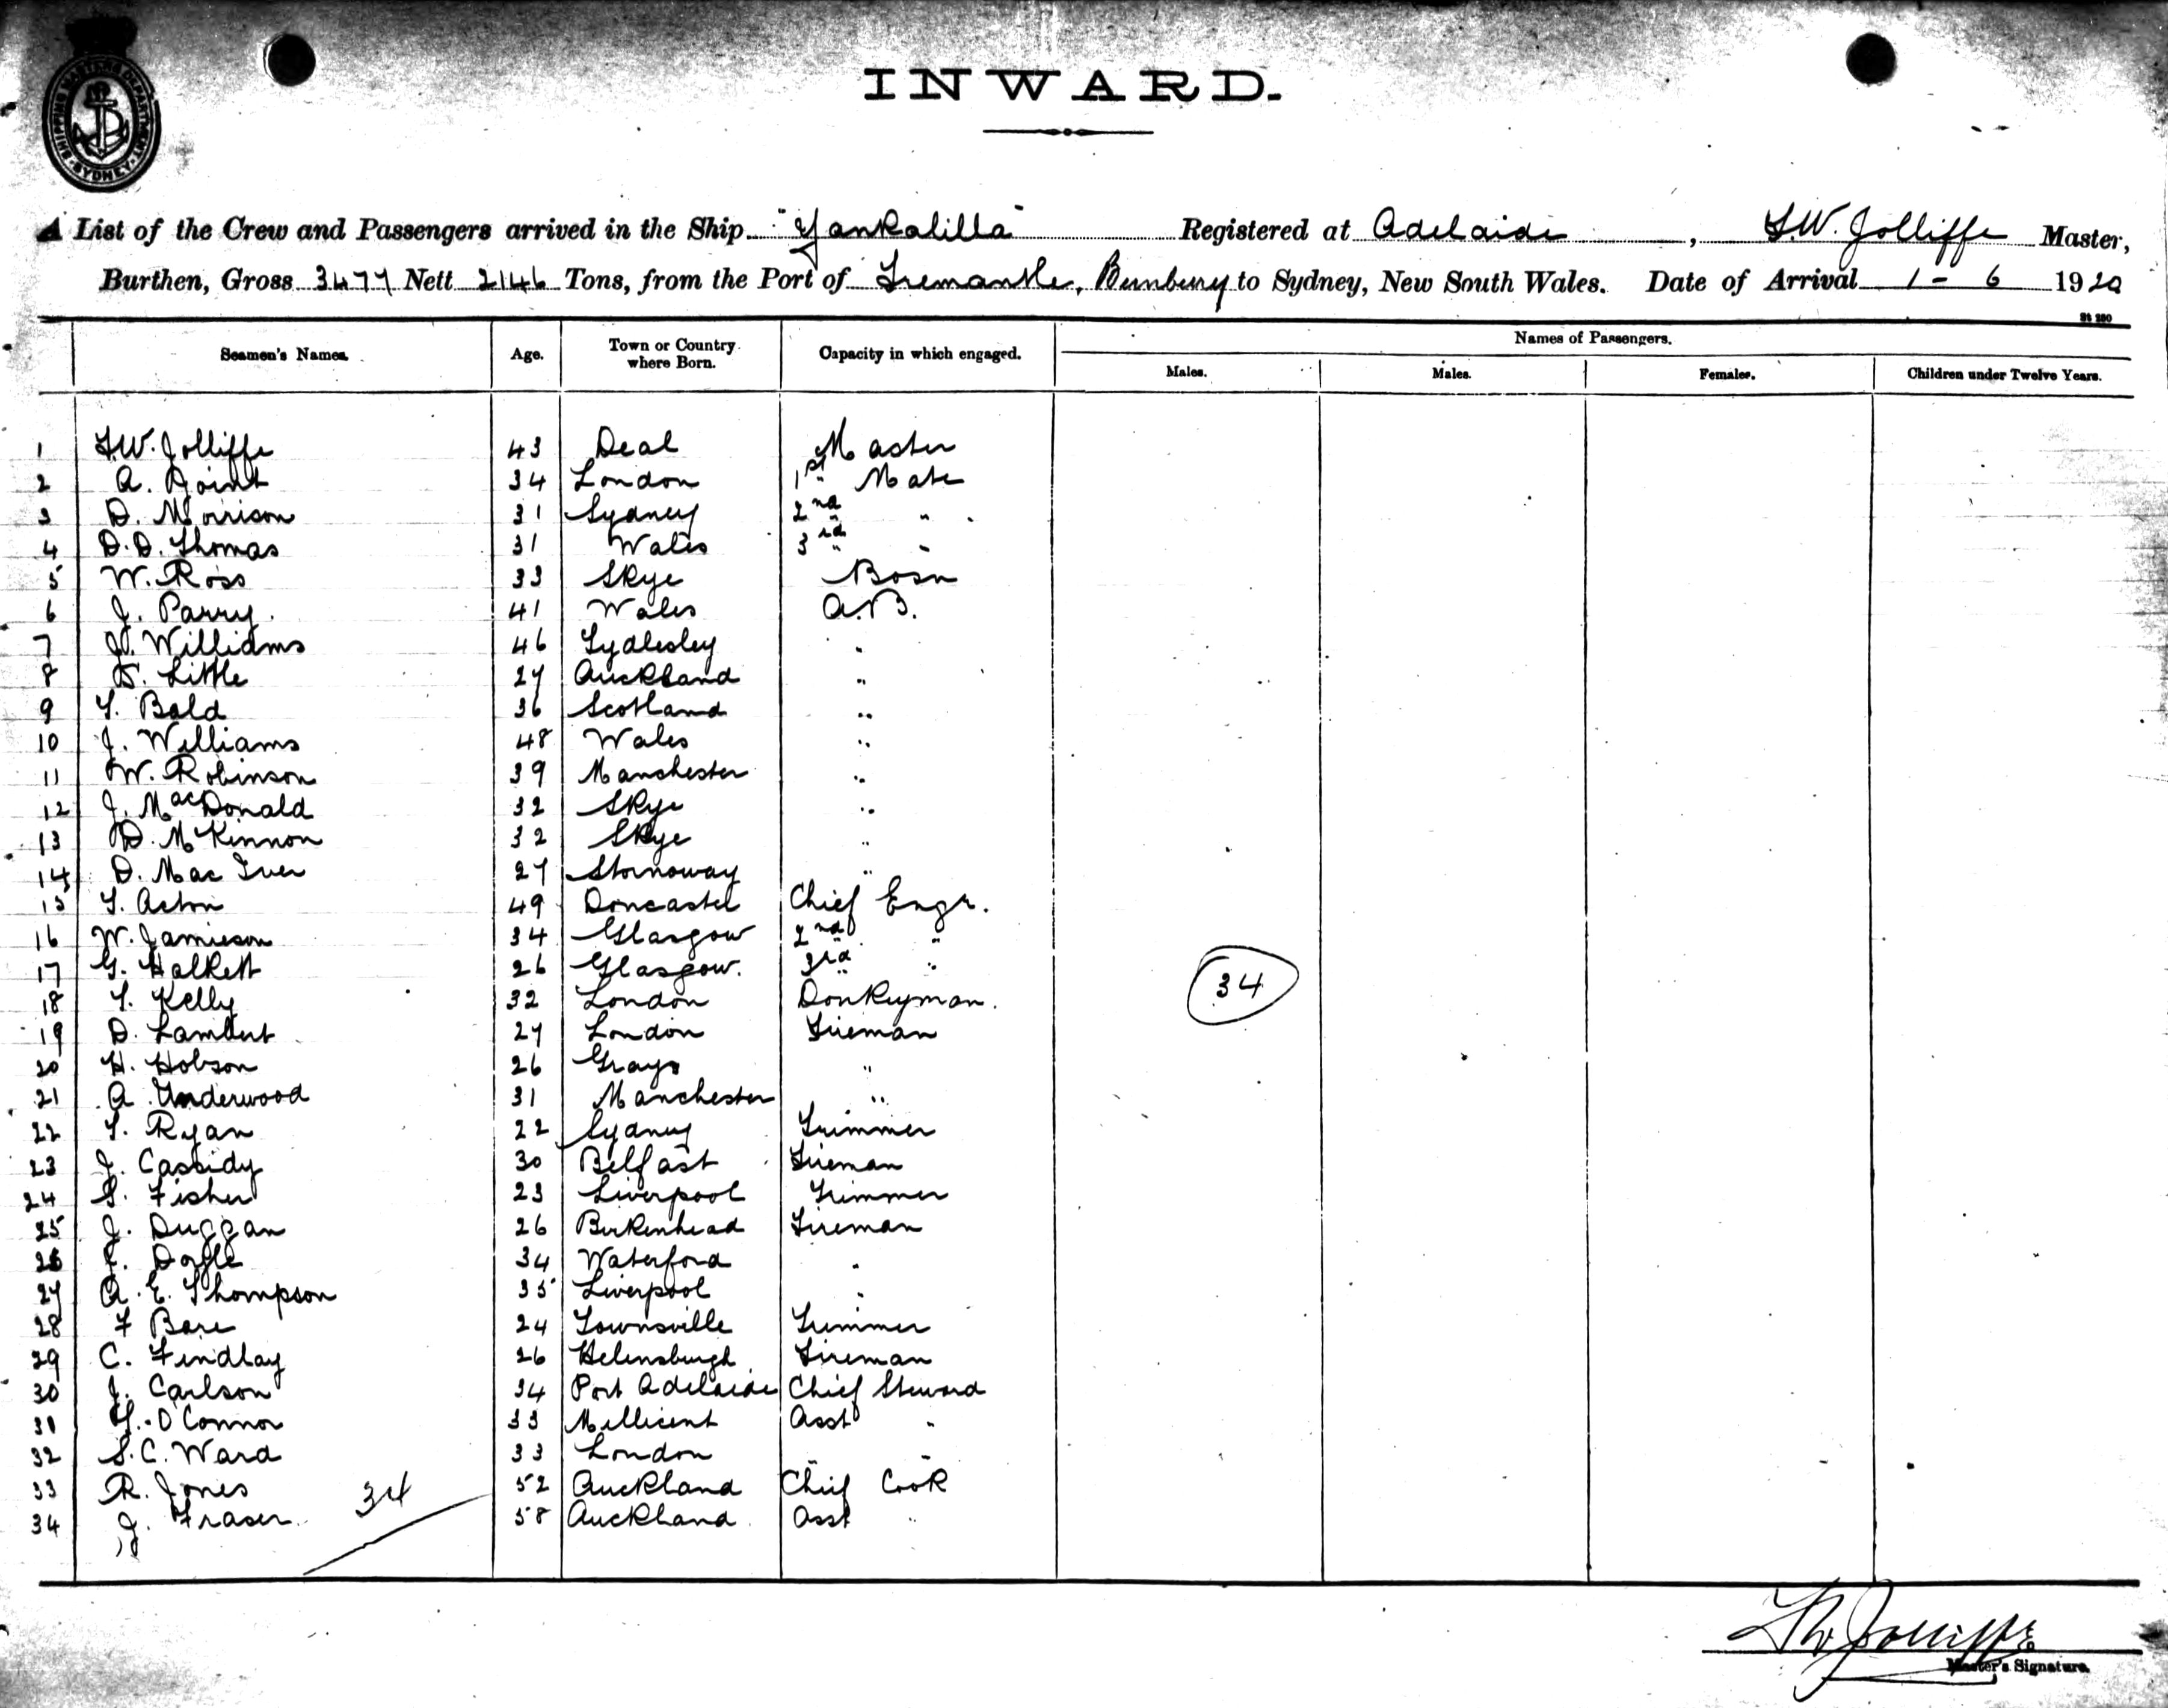 SHIPPING MASTERS DEPARTMENT
SYDNEY
INWARD.
A List of the Crew and Passengers arrived in the Ship "Yankalilla" Registered at Adelaide, F.W. Jolliffe Master,
Burthen, Gross 3477 Nett 2146 Tons, from the Port of Fremantle, Bunbury to Sydney, New South Wales. Date of Arrival 1 - 6 1920
St 280
Seamen's Names. Age. Town or Country where Born. Capacity in which engaged. Names of Passengers.
Males. Males. Females. Children under Twelve Years.
1 F.W. Jolliffe 43 Deal Master
2 A. Point 34 London 1st Mate
3 D. Morrison 31 Sydney 2nd "
4 D.D. Thomas 31 Wales 3rd "
5 W. Ross 33 Skye Bosn
6 J. Parry 41 Wales A.B.
7 J. Williams 46 Tydlesley "
8 Little 27 Auckland "
9 T. Bald 36 Scotland "
10 J. Williams 48 Wales "
11 W. Robinson 39 Manchester "
12 J. MacDonald 32 Skye "
13 D. McKinnon 32 Skye "
14 D. Mac Iver 27 Stornoway "
15 T. Acton 49 Doncaster Chief Engr.
16 W. Jamieson 34 Glasgow 2nd "
17 G. Halkett 26 Glasgow. 3rd "
34
18 T. Kelly 32 London Donkeyman.
19 D. Lambert 27 London Fireman
20 H. Hobson 26 Grays "
21 A. Underwood 31 Manchester "
22 T. Ryan 22 Sydney Trimmer
23 J. Cassidy 30 Belfast Fireman
24 S. Fisher 23 Liverpool Trimmer
25 J. Duggan 26 Birkenhead Fireman
26 Doyle 34 Waterford "
27 A. E. Thompson 35 Liverpool "
28 F Bare 24 Townsville Trimmer
29 C. Findlay 26 Helensburgh Fireman
30 J. Carlson 34 Port Adelaide Chief Steward
31 O'Connor 33 Millicent Asst "
32 S.C. Ward 33 London " "
33 R. Jones 52 Auckland Chief Cook
34 J. Fraser 58 Auckland Asst "
34
F W Jolliffe
Master's Signature.